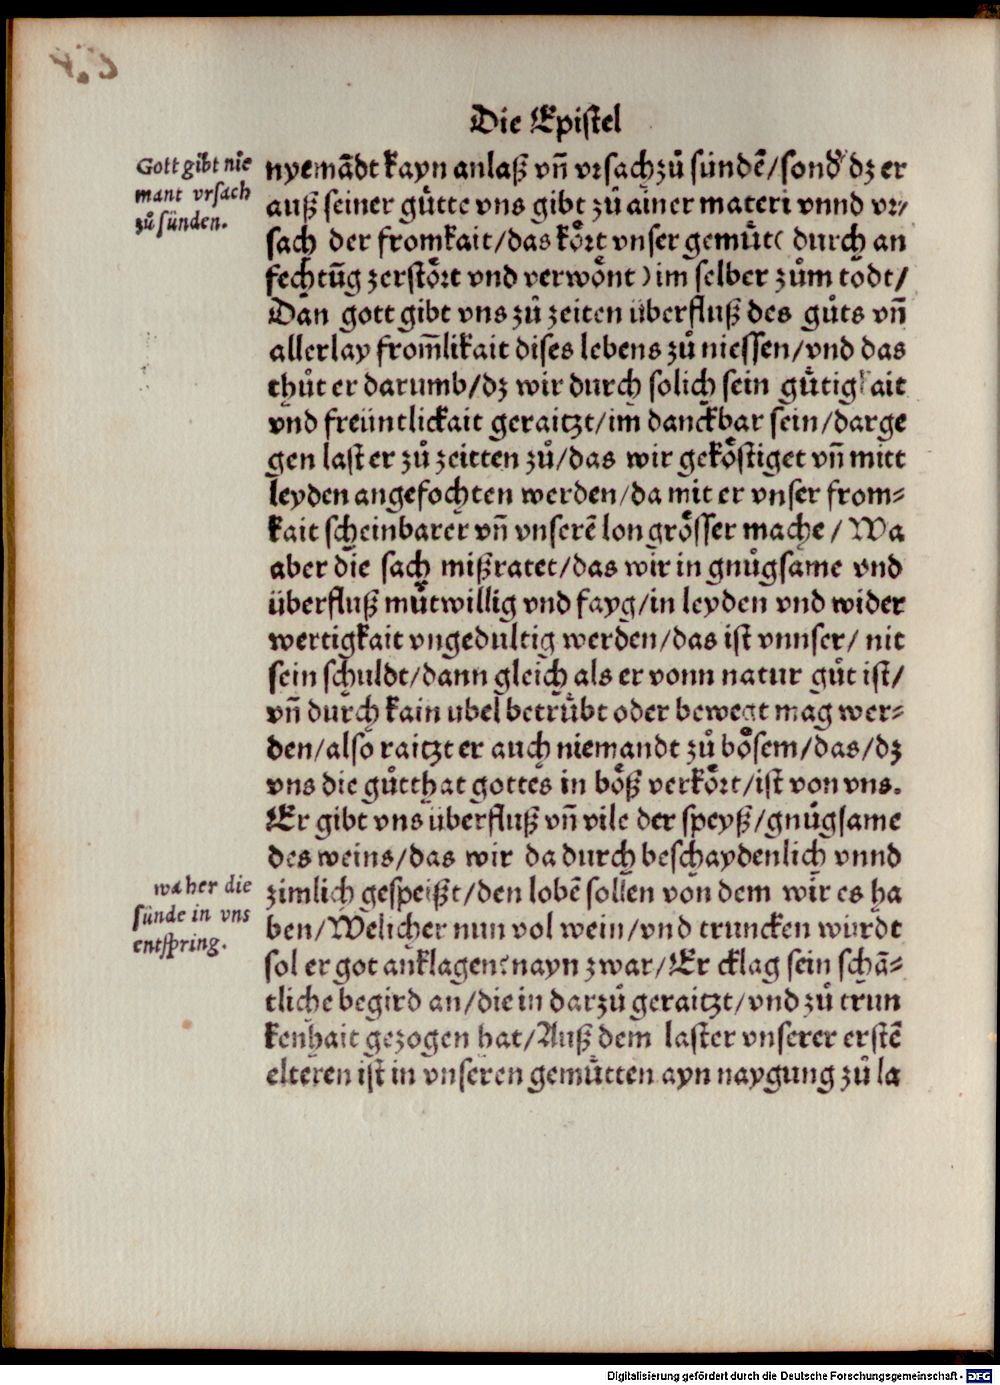 Die Epistel
Gott gibt nie
mant vrsach
zů sünden.
nyemãdt kayn anlaß vñ vrsach zů sündẽ/sond' dz er
auß seiner gůtte vns gibt zů ainer materi vnnd vr/
sach der fromkait/das kört vnser gemüt( durch an
fechtũg zerstört vnd verwönt) im selber zům todt/
Dan gott gibt vns zů zeiten überfluß des gůts vñ
allerlay from̃likait dises lebens zů niessen/vnd das
thůt er darumb/dz wir durch solich sein gůtigkait
vnd freüntlickait geraitzt/im danckbar sein/darge
gen last er zů zeitten zů/das wir geköstiget vñ mitt
leyden angefochten werden/da mit er vnser from⸗
kait scheinbarer vñ vnserẽ lon grösser mache/ Wa
aber die sach mißratet/das wir in gnůgsame vnd
überfluß můtwillig vnd fayg/in leyden vnd wider
wertigkait vngedultig werden/das ist vnnser/ nit
sein schuldt/dann gleich als er vonn natur gůt ist/
vñ durch kain ubel betrůbt oder bewegt mag wer⸗
den/also raitzt er auch niemandt zů bösem/das/dz
vns die gůtthat gottes in böß verkört/ist von vns.
Er gibt vns überfluß vñ vile der speyß/gnůgsame
des weins/das wir da durch beschaydenlich vnnd
wa her die
sünde in vns
entspring.
zimlich gespeißt/den lobẽ sollen von dem wir es ha
ben/Welicher nun vol wein/vnd truncken würdt
sol er got anklagen? nayn zwar/Er cklag sein schã⸗
tliche begird an/die in darzů geraitzt/vnd zů trun
kenhait gezogen hat/Auß dem laster vnserer erstẽ
elteren ist in vnseren gemůtten ayn naygung zů la
Digitalisierung gefördert durch die Deutsche Forschungsgemeinschaft - DFG